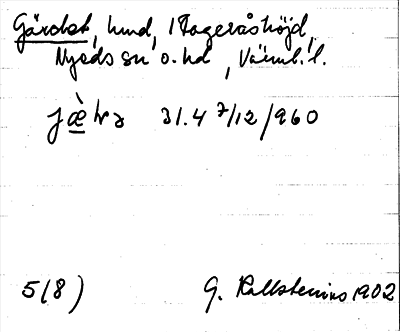 Gärdet, lund, i Kageråshöjd,
Nyeds sn o. hd, Värml. l.
31.4 7/12 1960
5(8) G. Kallstenius 1902